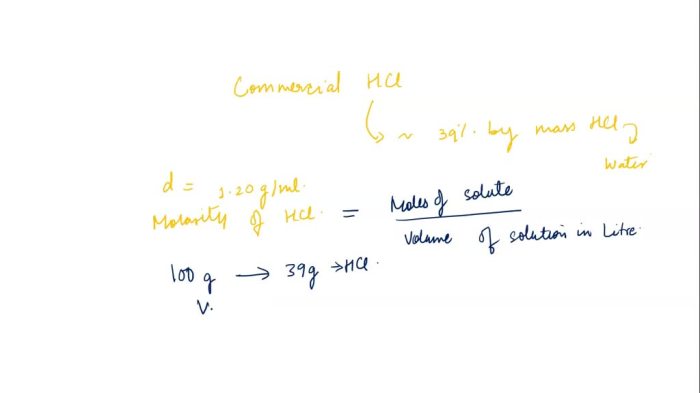 Commercial HCl
~ 39% by mass HCl
Water
d = 1.20g/ml.
Molarity of HCl. = Moles of solute
Volume of solution in Litre.
100g → 39g → HCl.
V.